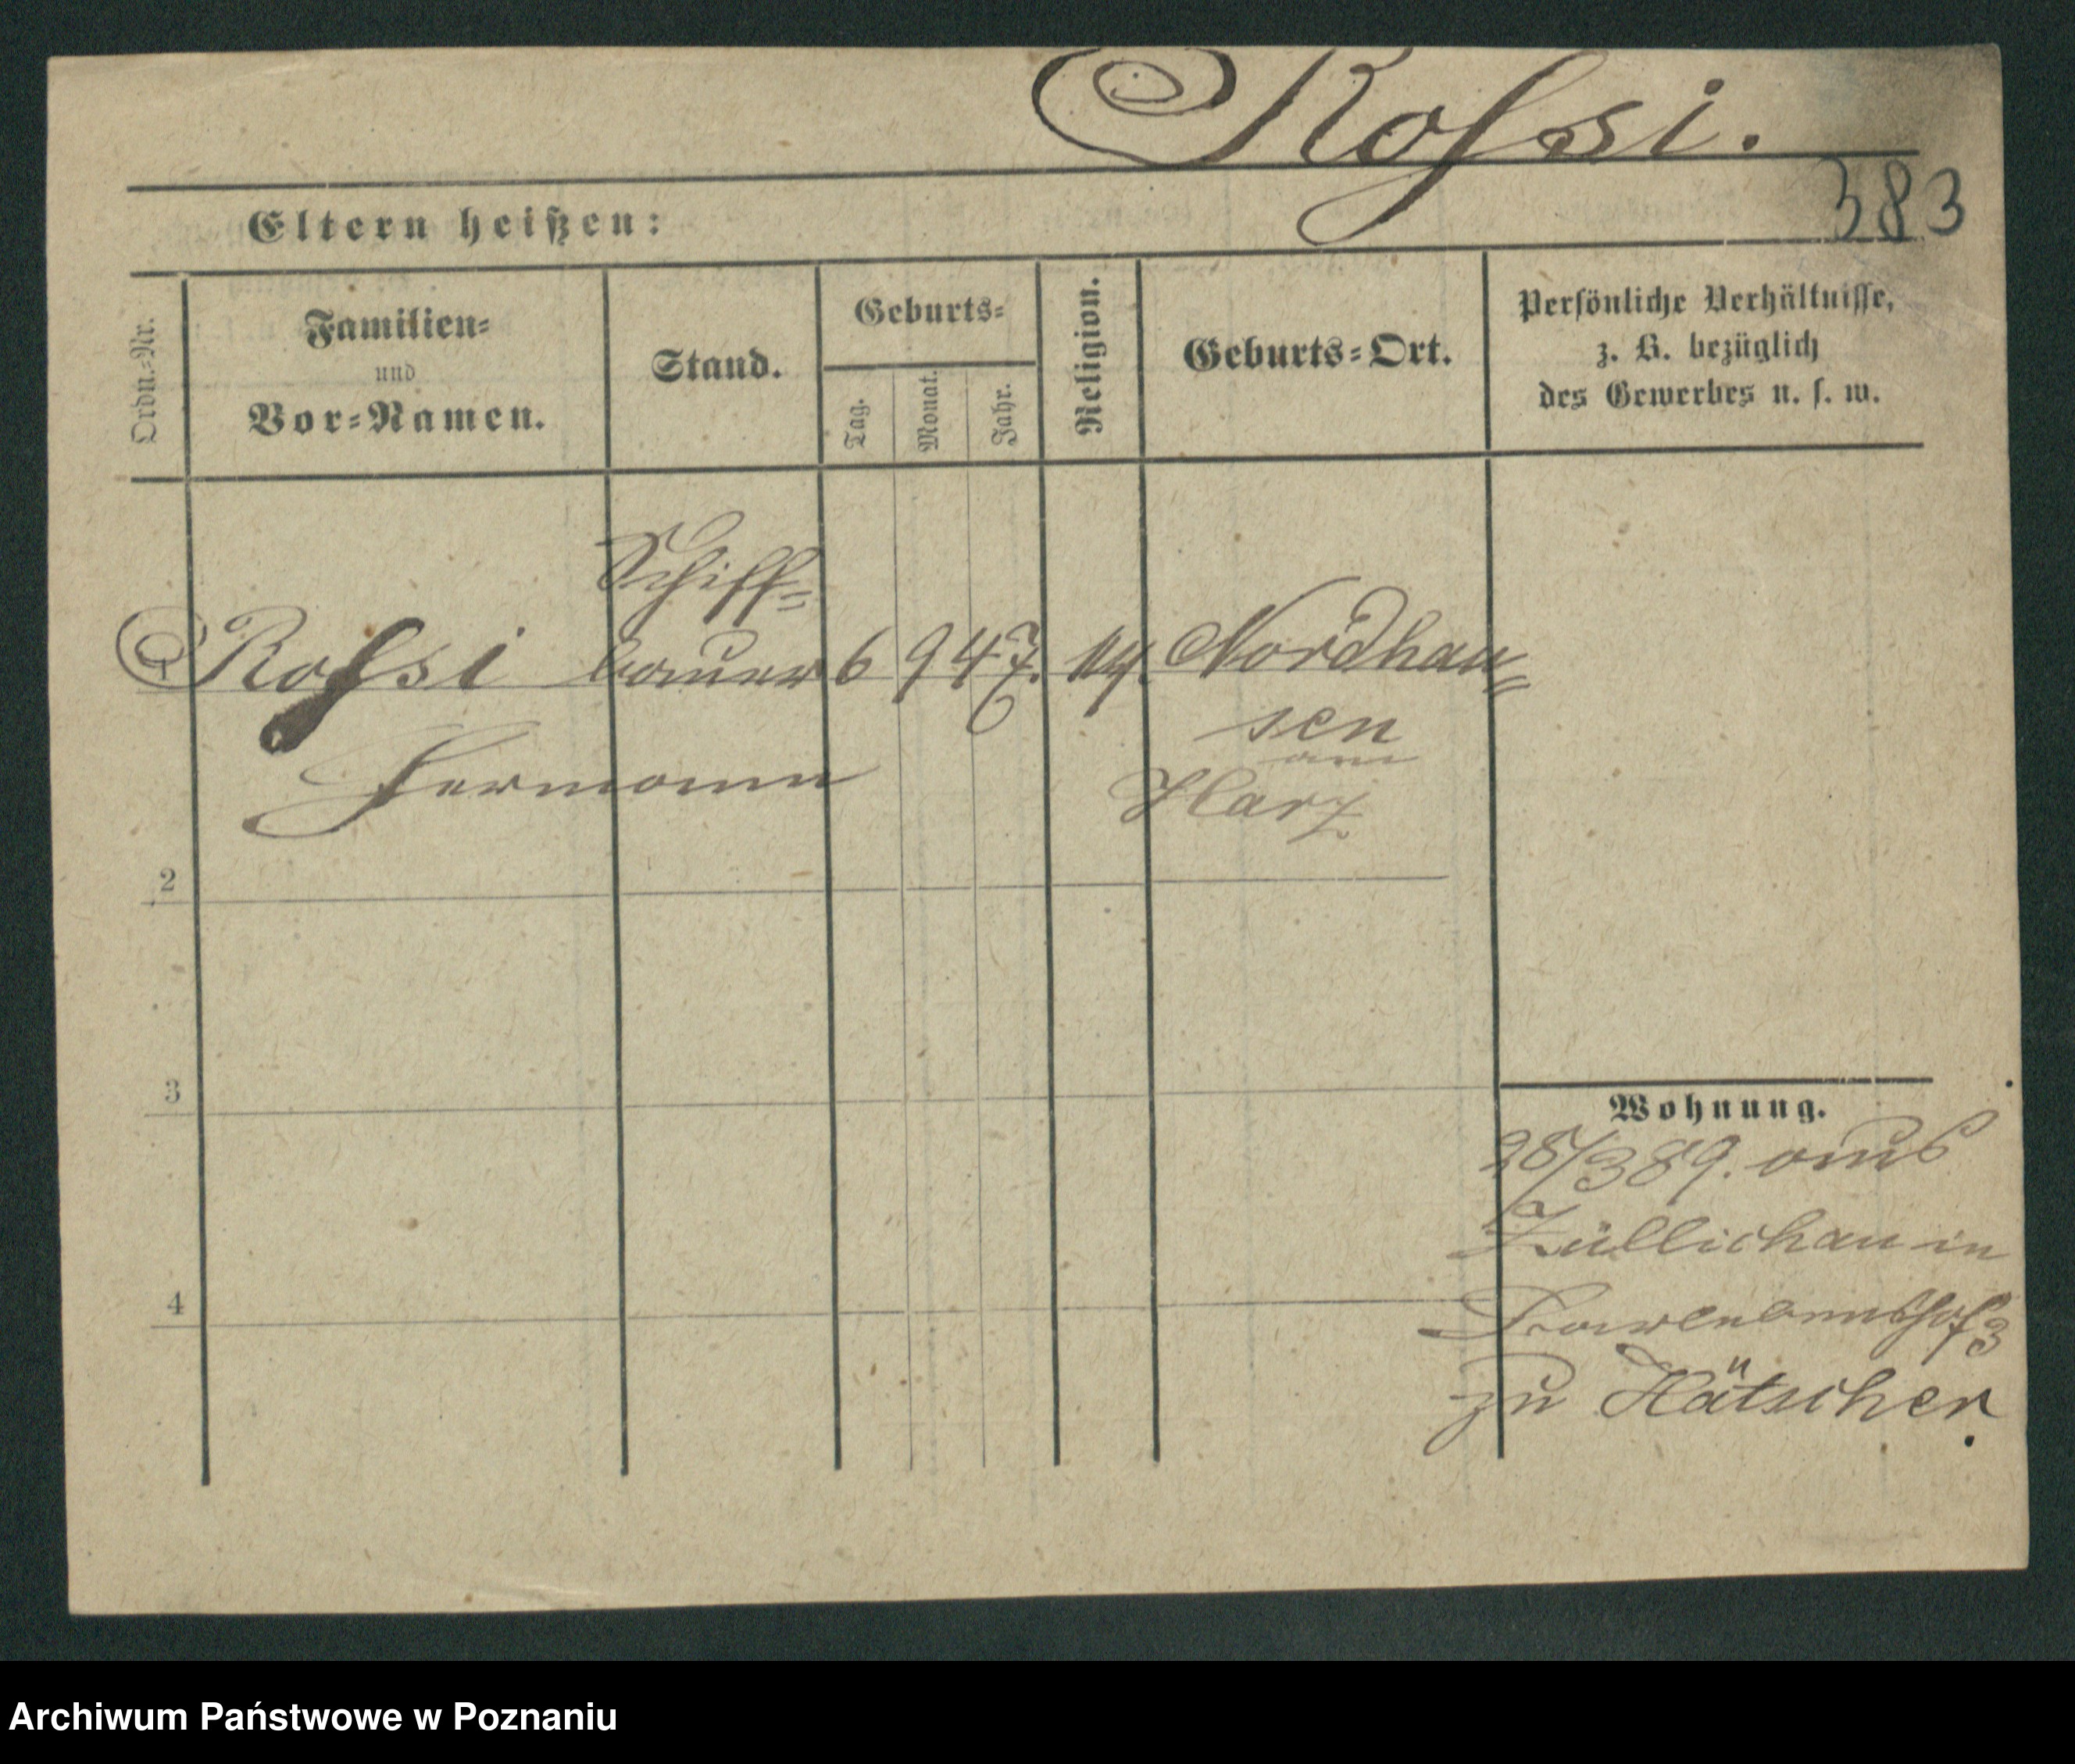 Roſsi.
383
Eltern heißen:
Ordn.-Nr.
Familien-
und
Vor-Namen.
Stand.
Geburts-
Tag.
Monat.
Jahr.
Religion.
Geburts-Ort.
Persönliche Verhältnisse,
z. B. bezüglich
des Gewerbes u. s. w.
Schiff-
1 Roſsi bauer 6 9 47. Nordhau-
sen
am
Hermann Harz
2
3
4
Wohnung.
28/3 89. aus
Züllichau in
3
zu Hätscher.
Archiwum Państwowe w Poznaniu